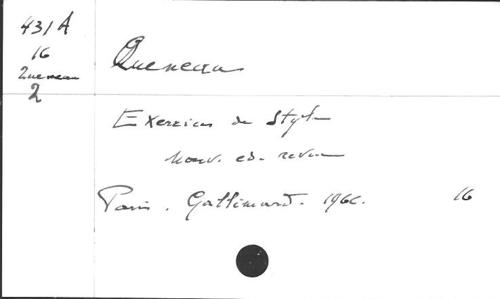 431A
16
Queneau
2
Queneau
Exercices de Style
nouv. ed. revue
Paris. Gallimard. 1966. 16